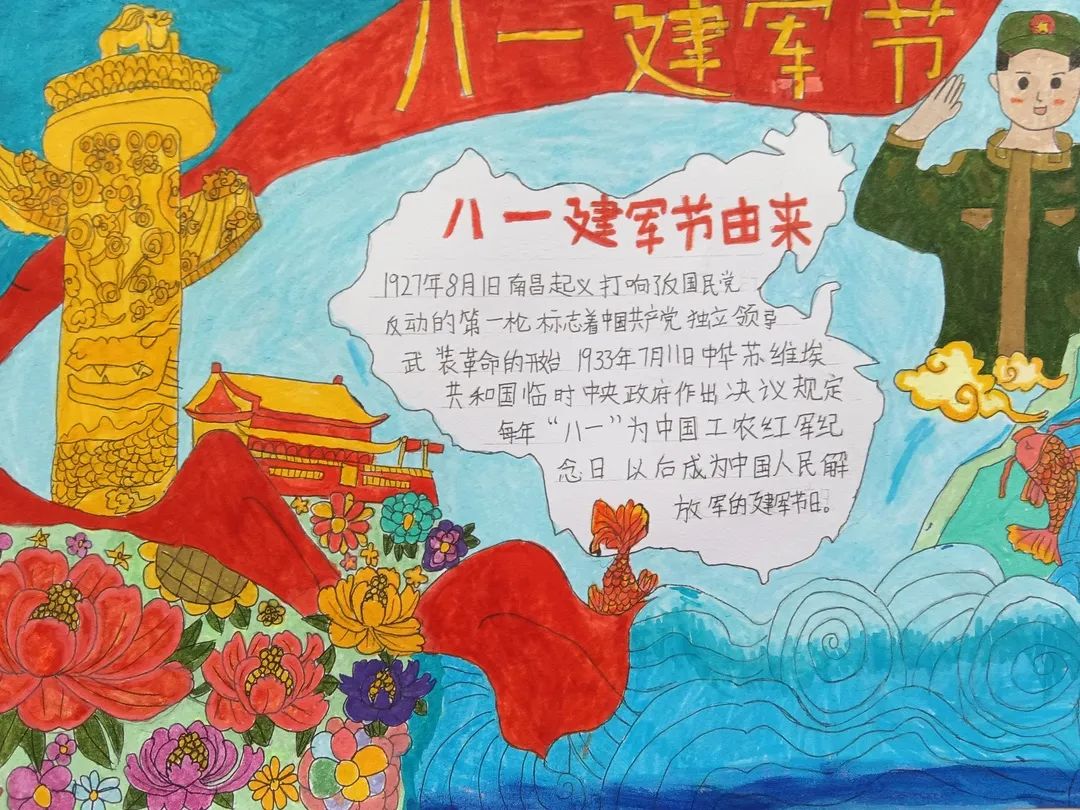 八一建军节
八一建军节由来
1927年8月1日南昌起义打响了反国民党
反动的第一枪标志着中国共产党独立领导
武装革命的开始 1933年7月11日中华苏维埃
共和国临时中央政府作出决议规定
每年“八一”为中国工农红军纪
念日 以后成为中国人民解
放军的建军节日。